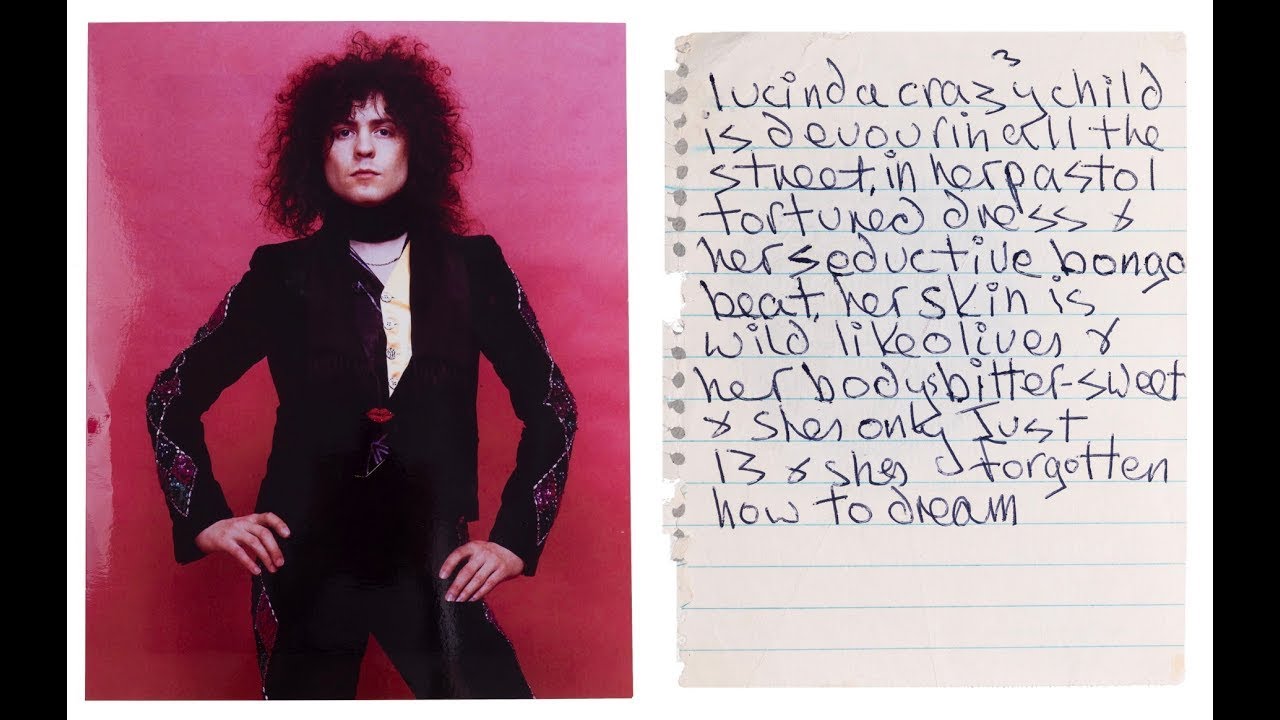 lucinda crazy child
is devourin all the
street, in her pastol
tortured dress &
her seductive bongo
beat, her skin is
wild like olives &
her bodys bitter-sweet
& shes only Just
13 & shes forgotten
how to dream